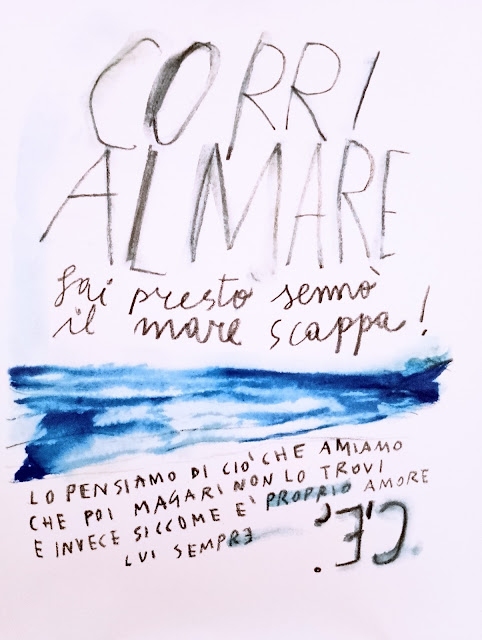 CORRI
AL MARE
fai presto sennò
il mare scappa!
LO PENSIAMO DI CIÒ CHE AMIAMO
CHE POI MAGARI NON LO TROVI
E INVECE SICCOME E' PROPRIO AMORE
LUI SEMPRE C'È.